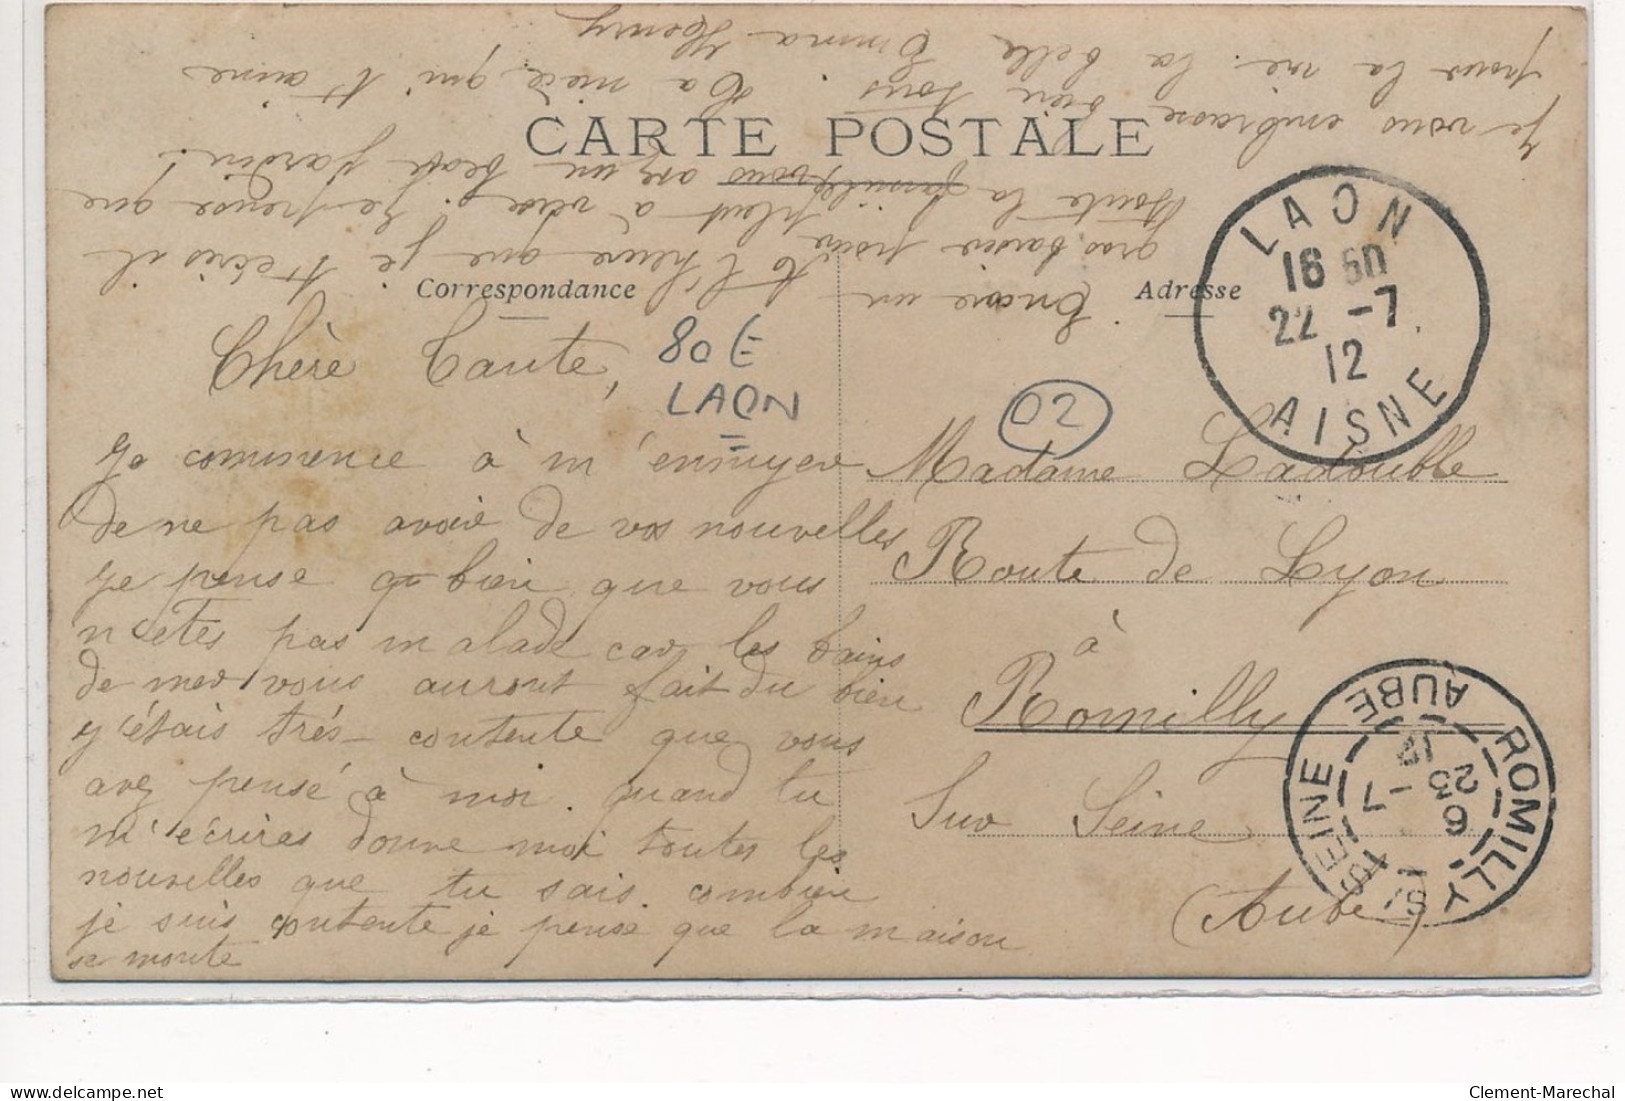 CARTE POSTALE
Correspondance
Adresse
Chère Tante,
80 E
LAON
02
Je commence à m'ennuyer
de ne pas avoir de vos nouvelles
je pense q bien que vous
n'etes pas malade car les bains
de mer vous auront fait du bien
j'étais trés contente que vous
avez pensé à moi. quand tu
m'écriras donne moi toutes les
nouvelles que tu sais. combien
je suis contente je pense que la maison
se monte
Madame Ladouble
Route de Lyon
à
Romilly
Sur Seine
(Aube)
LAON
16 50
22 -7
12
AISNE
ROMILLY S/ SEINE
6
23 -7
12
AUBE
Encore un
gros baiser pour
toute la famille
l'heure que je t'écris il
pleut à verse. Je pense que
vous avez un beau jardin.
Je vous embrasse bien tous. Ta nièce qui t'aime
pour la vie. la belle Emma Henry
Clement-Marechal